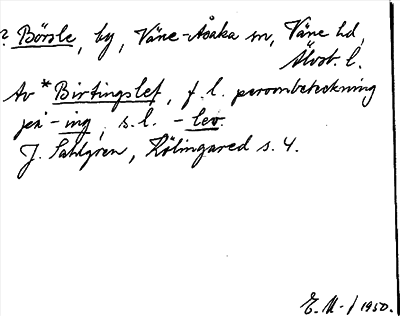 ? Börsle, by, Väne-Åsaka sn, Väne hd,
Älvsb. l.
Av *Birtingslef, f. l. personbeteckning
på -ing, s. l. -lev.
J. Sahlgren, Kölingared s. 4.
E. M-/1950.